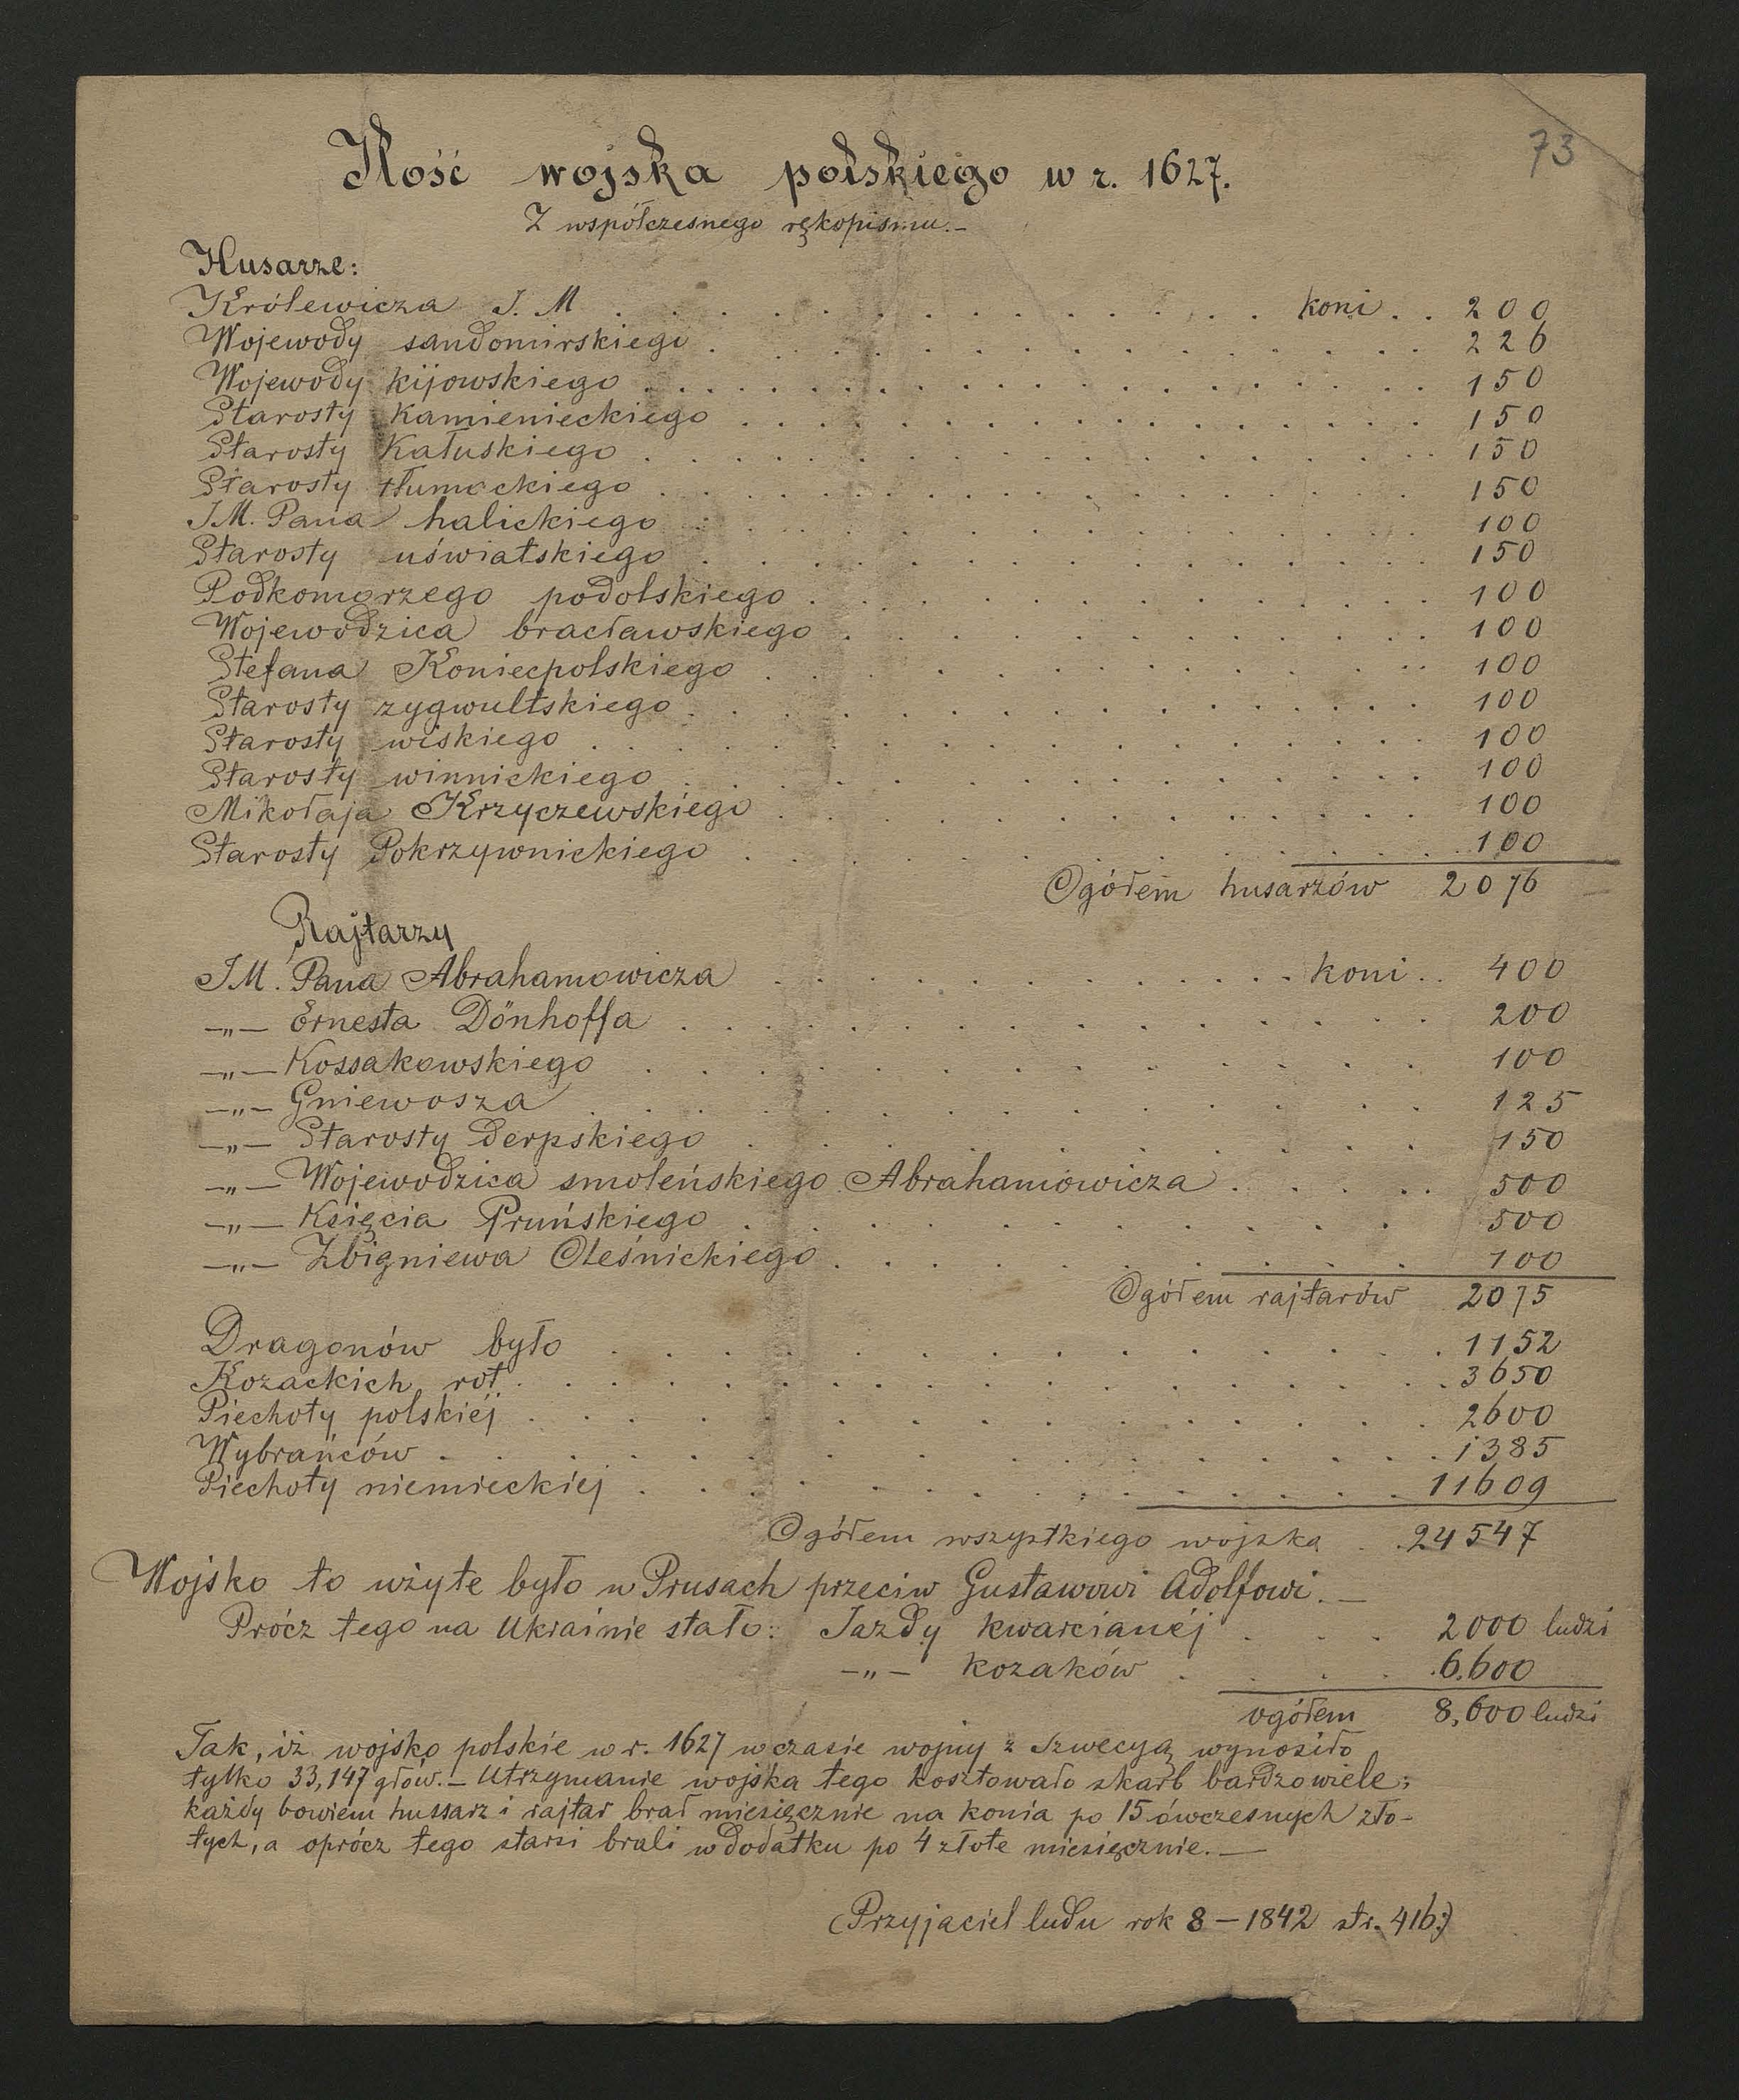 73
Ilość wojska polskiego w r. 1627.
Z współczesnego rękopismu.-
Husarze:
Królewicza J. M . . . . . . . . . . . . koni . . 200
Wojewody sandomirskiego . . . . . . . . . . . . 226
Wojewody kijowskiego . . . . . . . . . . . . 150
Starosty Kamienieckiego . . . . . . . . . . . . 150
Starosty Kałuskiego . . . . . . . . . . . . 150
Starosty tłumackiego . . . . . . . . . . . . 150
JM. Pana halickiego . . . . . . . . . . . . 100
Starosty uświatskiego . . . . . . . . . . . . 150
Podkomorzego podolskiego . . . . . . . . . . . . 100
Wojewodzica bracławskiego . . . . . . . . . . . . 100
Stefana Koniecpolskiego . . . . . . . . . . . . 100
Starosty zygwultskiego . . . . . . . . . . . . 100
Starosty wiskiego . . . . . . . . . . . . 100
Starosty winnickiego . . . . . . . . . . . . 100
Mikołaja Krzyczewskiego . . . . . . . . . . . . 100
Starosty Pokrzywnickiego . . . . . . . . . . . . 100
Ogółem husarzów 2076
Rajtarzy
JM. Pana Abrahamowicza . . . . . . . . . . koni . . 400
—„— Ernesta Dönhoffa . . . . . . . . . . . . 200
—„— Kossakowskiego . . . . . . . . . . . . 100
—„— Gniewosza . . . . . . . . . . . . 125
—„— Starosty derpskiego . . . . . . . . . . . . 150
—„— Wojewodzica smoleńskiego Abrahamowicza . . . . . . 500
—„— Księcia Pruńskiego . . . . . . . . . . . . 500
—„— Zbigniewa Oleśnickiego . . . . . . . . . . . . 100
Ogółem rajtarów 2075
Dragonów było . . . . . . . . . . . . 1152
Kozackich rot . . . . . . . . . . . . 3650
Piechoty polskiéj . . . . . . . . . . . . 2600
Wybrańców . . . . . . . . . . . . 1385
Piechoty niemieckiéj . . . . . . . . . . . . 11609
Ogółem wszystkiego wojska . . 24547
Wojsko to użyte było w Prusach przeciw Gustawowi Adolfowi. —
Prócz tego na Ukrainie stało: Jazdy kwarcianéj . . . 2000 ludzi
—„— kozaków . . . . 6.600
ogółem 8,600 ludzi
Tak, iż wojsko polskie w r. 1627 w czasie wojny z Szwecyą wynosiło
tylko 33,147 głów. — Utrzymanie wojska tego kosztowało skarb bardzo wiele;
każdy bowiem hussarz i rajtar brał miesięcznie na konia po 15 ówczesnych zło-
tych, a oprócz tego starsi brali w dodatku po 4 złote miesięcznie. —
(Przyjaciel ludu rok 8 — 1842 str. 416:)